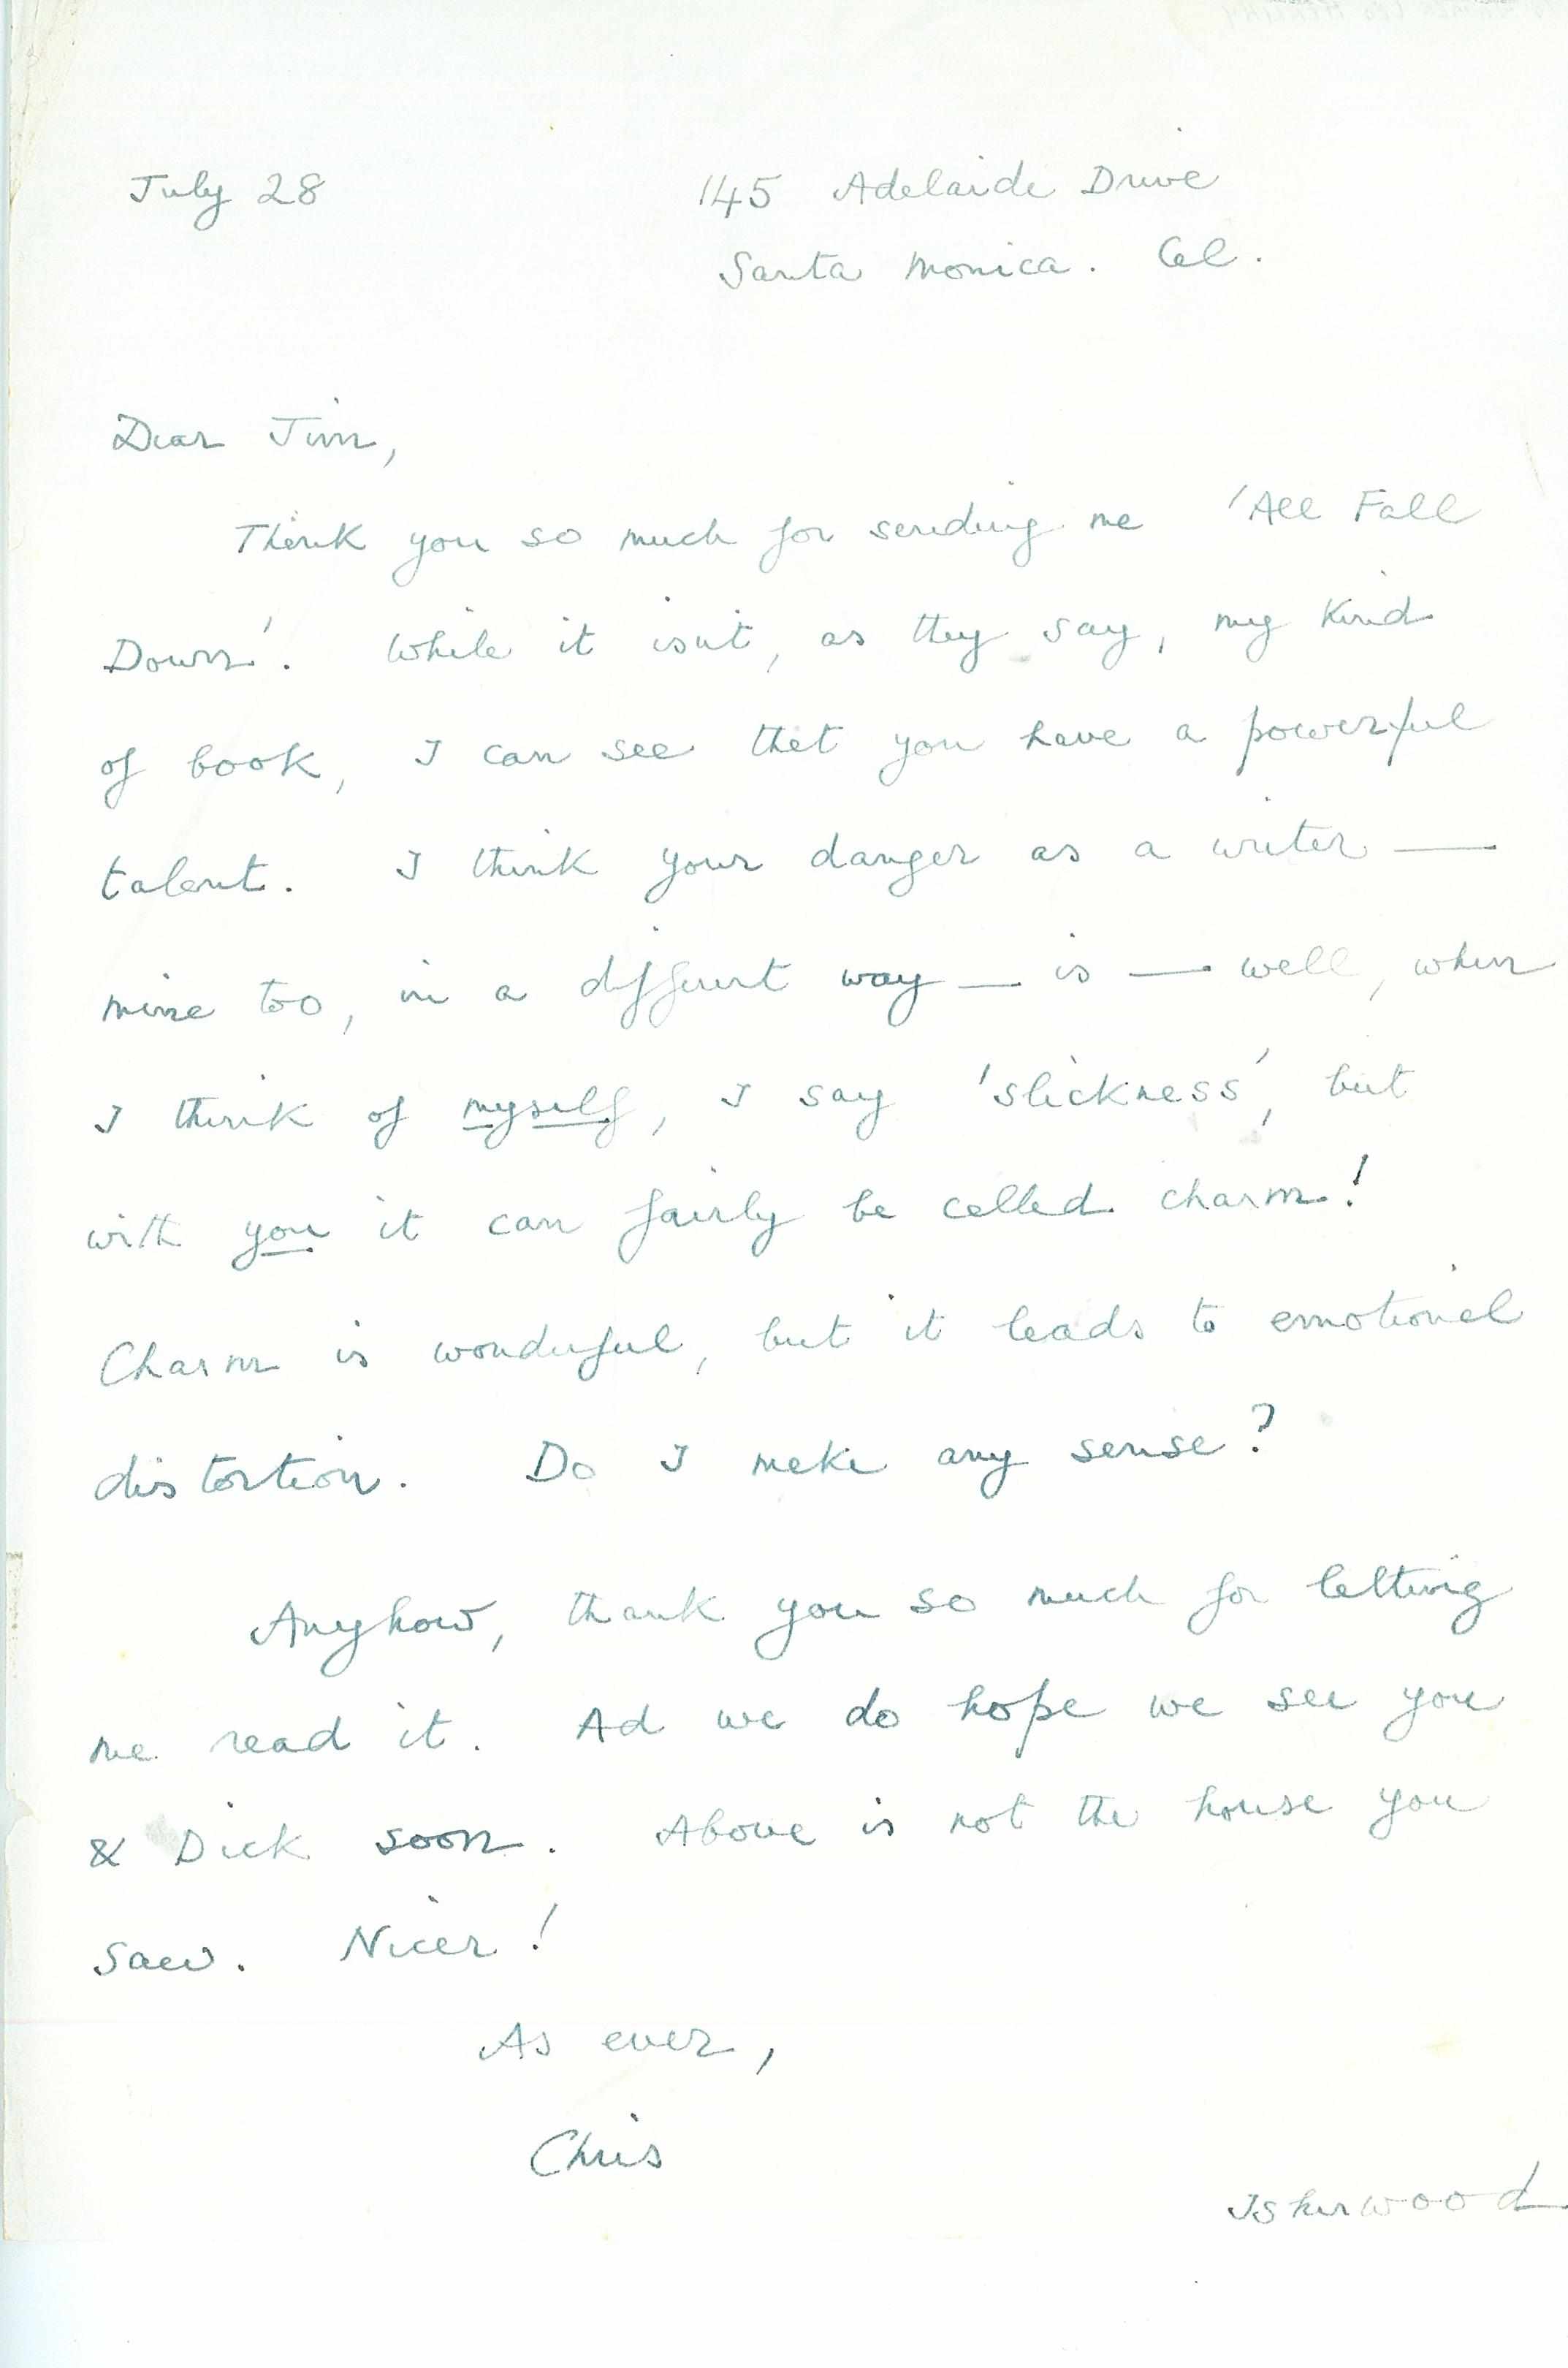 July 28
145 Adelaide Drive
Santa Monica. Cal.
Dear Jim,
Thank you so much for sending me 'All Fall
Down'. While it isn't, as they say, my kind
of book, I can see that you have a powerful
talent. I think your danger as a writer —
mine too, in a different way — is — well, when
I think of myself, I say 'slickness', but
with you it can fairly be called charm!
Charm is wonderful, but it leads to emotional
distortion. Do I make any sense?
Anyhow, thank you so much for letting
me read it. Ad we do hope we see you
& Dick soon. Above is not the house you
saw. Nicer!
As ever,
Chris
Isherwood